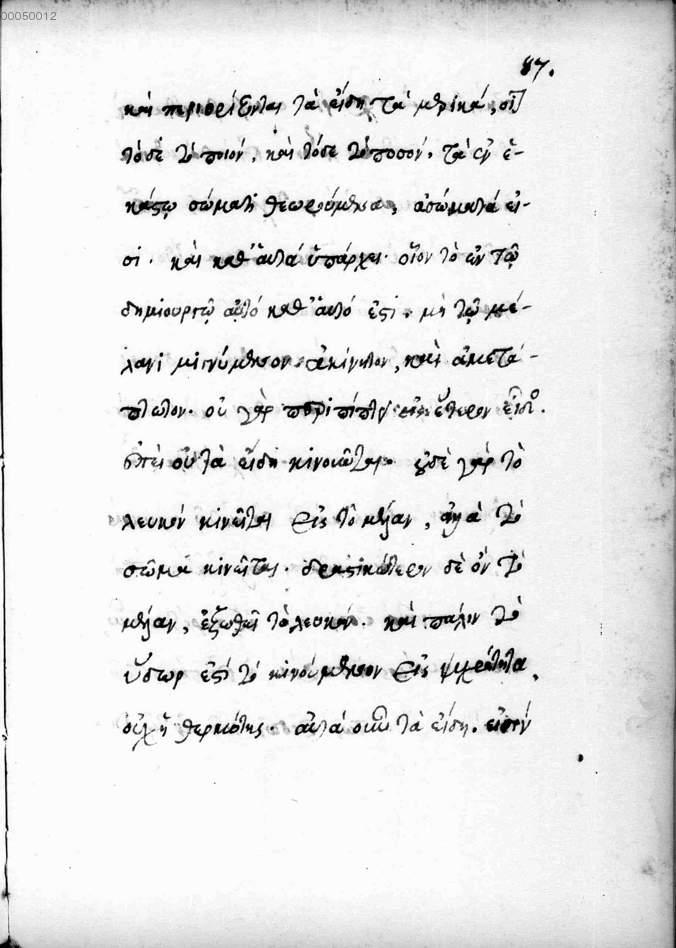 00050012
87.
καὶ περιορίζονται τὰ εἴδη τὰ μερικά, οἷον
τόδε τὸ ποιόν, καὶ τόδε τὸ ποσόν. τὰ ἐν ἑ-
κάστῳ σώματι θεωρούμενα, ἀσώματά εἰ-
σι. καὶ καθ' αὑτὰ ὑπάρχει. οἷον τὸ ἐν τῷ
δημιουργῷ αὐτό καθ' αὑτό ἐστι. μὴ τῷ μέ-
λανι μιγνύμενον. ἀκίνητον, καὶ ἀμετά-
πτωτον. οὐ γὰρ περιπίπτει εἰς ἕτερον εἶδος.
ἐπεὶ οὐ τὰ εἴδη κινοῦνται. οὐδὲ γὰρ τὸ
λευκόν κινεῖται εἰς τὸ μέλαν, ἀλλὰ τὸ
σῶμα κινεῖται. δραστικώτερον δὲ ὂν τὸ
μέλαν, ἐξωθεῖ τὸ λευκόν. καὶ πάλιν τὸ
ὕδωρ ἐστί τὸ κινούμενον εἰς ψυχρότητα,
οὐχ ἡ θερμότης. αὐτά οὖν τὰ εἴδη. εἰσὶν